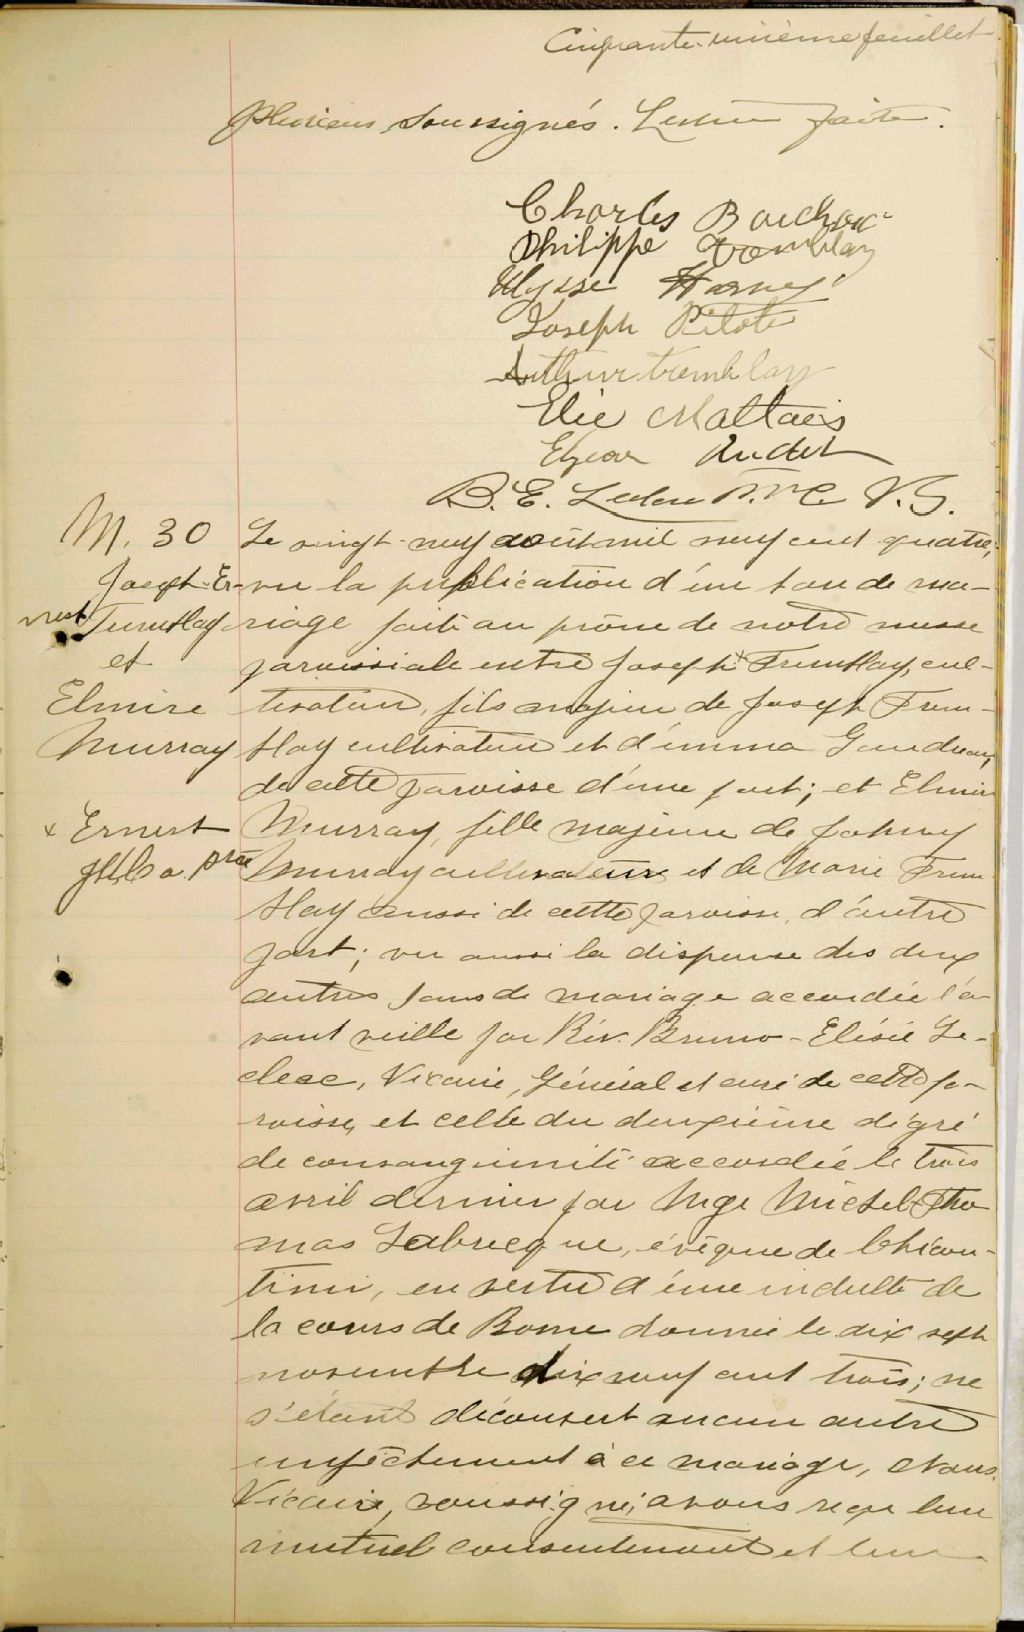 Cinquante-unième feuillet
plusieurs soussignés. Lecture faite.
Charles Bouchar
Philippe Tremblay
Ulysse Harvey
Joseph Pilote
Arthur tremblay
Elie Maltais
Elzear Audet
B. E. Leclerc Ptre V. G.
M. 30
Joseph-Er-
nest Tremblay
et
Elmire
Murray
x Ernest
ptre
Le vingt-neuf août mil neuf cent quatre,
vu la publication d'un ban de ma-
riage faite au prône de notre messe
paroissiale entre Joseph x Tremblay, cul-
tivateur, fils majeur de Joseph Trem-
blay cultivateur et d'emma Gaudreau,
de cette paroisse d'une part; et Elmire
Murray, fille majeure de Johnny
Murray cultivateur et de Marie Trem
blay aussi de cette paroisse, d'autre
part; vu aussi la dispense des deux
autres bans de mariage accordée l'a-
vant veille par Rév. Bruno-Elisée Le-
clerc, Vicaire, Général et curé de cette pa-
roisse, et celle du deuxième dégré
de consanguinité accordée le trois
avril dernier par Mgr Michel Tho
mas Labrecque, évêque de Chicou-
timi, en vertu d'une indulte de
la cours de Rome donnée le dix sept
novembre dix neuf cent trois; ne
s'étant découvert aucun autre
empêchement à ce mariage, Nous,
Vicaire, soussigné, avons reçu leur
mutuel consentement et leur